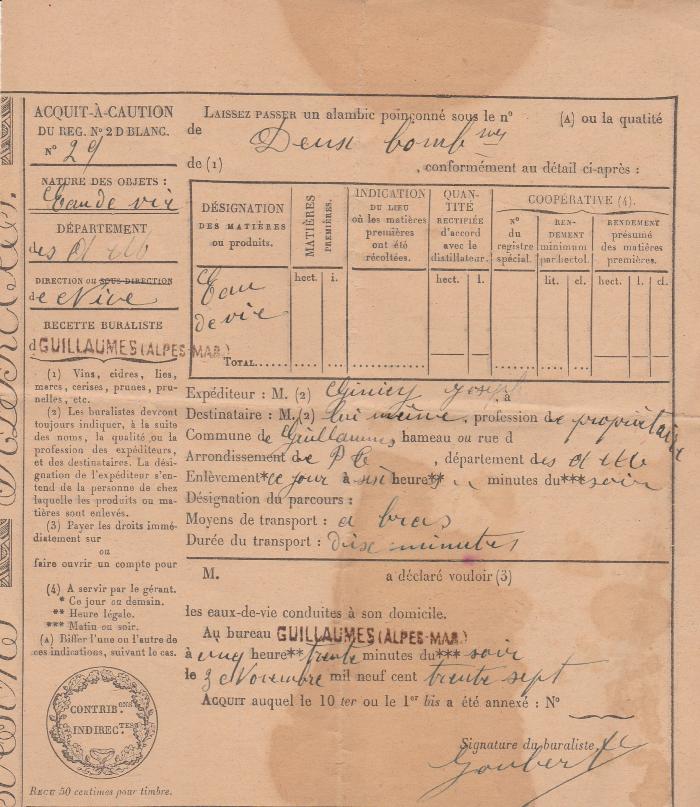 ACQUIT-À-CAUTION
DU REG. N° 2 D BLANC.
N° 29
NATURE DES OBJETS :
Eau de vie
DÉPARTEMENT
des A Mes
DIRECTION ou SOUS-DIRECTION
de Nice
RECETTE BURALISTE
d GUILLAUMES (ALPES-MAR.)
(1) Vins, cidres, lies,
mercs, cerises, prunes, pru-
nelles, etc.
(2) Les buralistes devront
toujours indiquer, à la suite
des noms, la qualité ou la
profession des expéditeurs,
et des destinataires. La dési-
gnation de l'expéditeur s'en-
tend de la personne de chez
laquelle les produits ou ma-
tières sont enlevés.
(3) Payer les droits immé-
diatement sur
ou
faire ouvrir un compte pour
(4) A servir par le gérant.
* Ce jour ou demain.
** Heure légale.
*** Matin ou soir.
(A) Biffer l'une ou l'autre de
ces indications, suivant le cas.
CONTRIB.ONS
INDIREC.TES
REÇU 50 centimes pour timbre.
LAISSEZ PASSER un alambic poinçonné sous le n° (A) ou la quatité
de Deux bomb nes
de (1) , conformément au détail ci-après :
DÉSIGNATION
DES MATIÈRES
ou produits.
MATIÈRES
PREMIÈRES.
INDICATION
DU LIEU
où les matières
premières
ont été
récoltées.
QUAN-
TITÉ
RECTIFIÉE
d'accord
avec le
distillateur.
COOPÉRATIVE (4).
N°
du
registre
spécial.
REN-
DEMENT
minimum
par hectol.
RENDEMENT
présumé
des matières
premières.
hect. i. hect. l. lit. cl. hect. l. cl.
Eau
de vie
TOTAL
Expéditeur : M. (2) Joseph, à
Destinataire : M. (2) lui même, profession de propriétaire
Commune de Guillaumes hameau ou rue d
Arrondissement de P T, département des A Mes
Enlèvement* ce jour à six heure** minutes du*** soir
Désignation du parcours :
Moyens de transport : à bras
Durée du transport : dix minutes
M. a déclaré vouloir (3)
les eaux-de-vie conduites à son domicile.
Au bureau GUILLAUMES (ALPES-MAR.)
à cinq heure** trente minutes du*** soir
le 3 Novembre mil neuf cent trente sept
ACQUIT auquel le 10 ter ou le 1er bis a été annexé : N°
Signature du buraliste,
Joubert